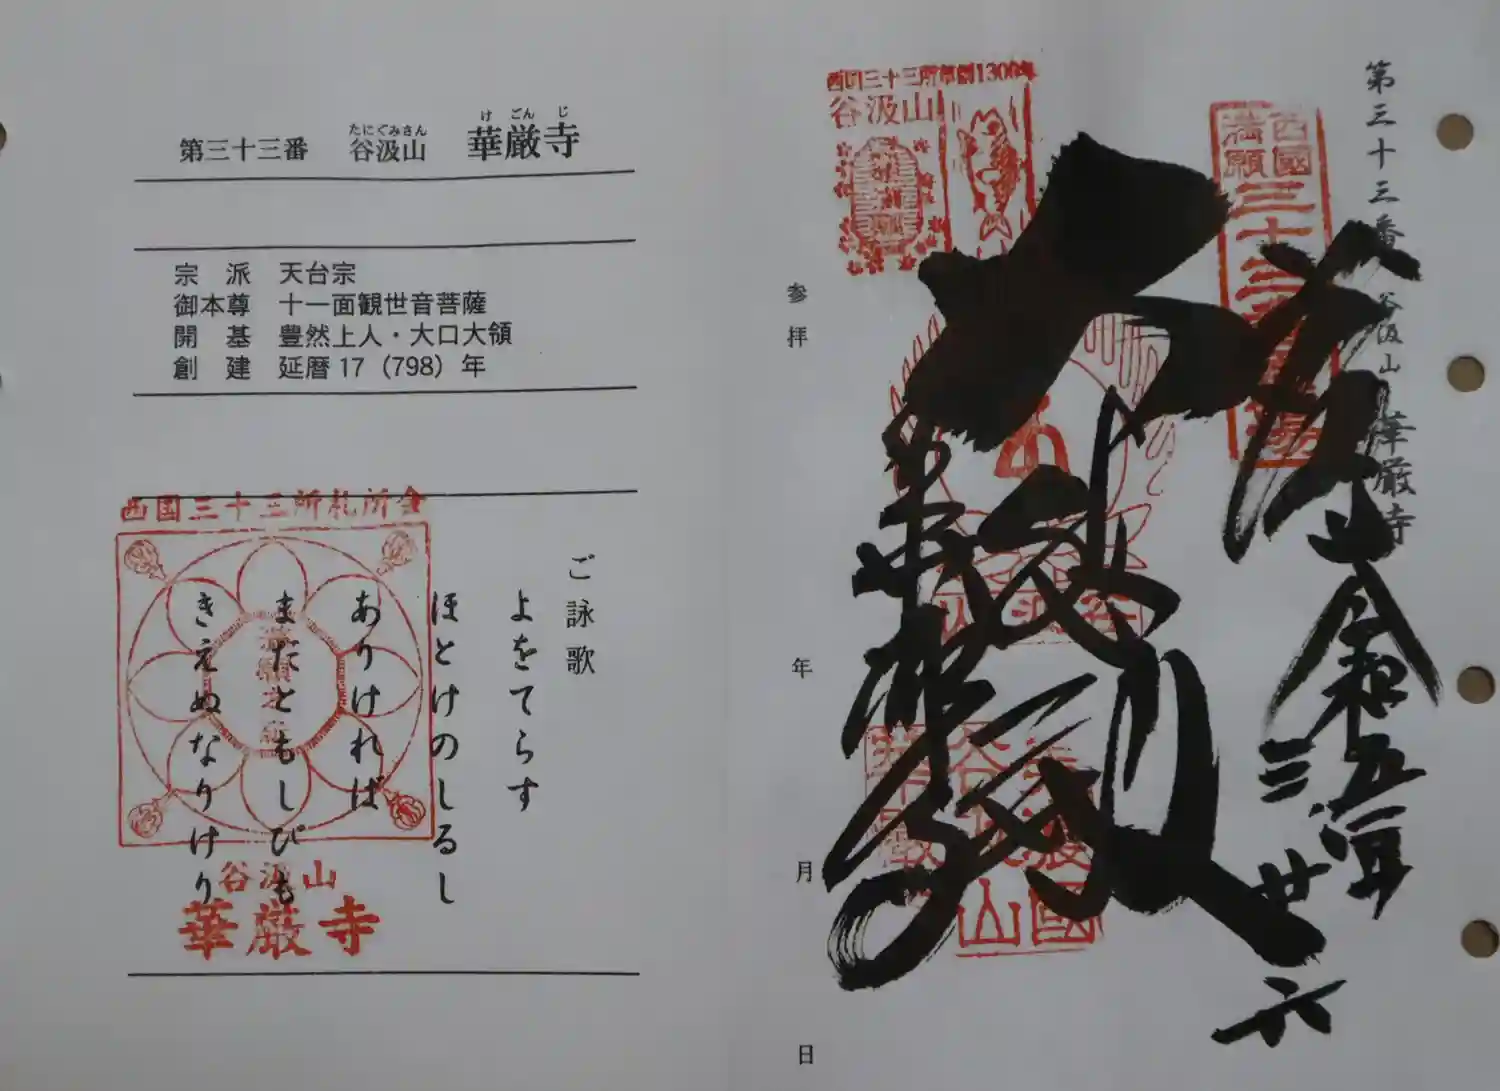 第三十三番 谷汲山 華厳寺
たにぐみさん けごんじ
宗派 天台宗
御本尊 十一面観世音菩薩
開基 豊然上人・大口大領
創建 延暦17(798)年
西国三十三所札所会
ご詠歌
よをてらす
ほとけのしるし
ありければ
まだともしびも
きえぬなりけり
満願之印
谷汲山
華厳寺
第三十三番 谷汲山 華厳寺
西國
満願
三十三
奉拝
令和五年
三 廿六
大悲殿
西国三十三所草創1300年
谷汲山
参拝 年 月 日